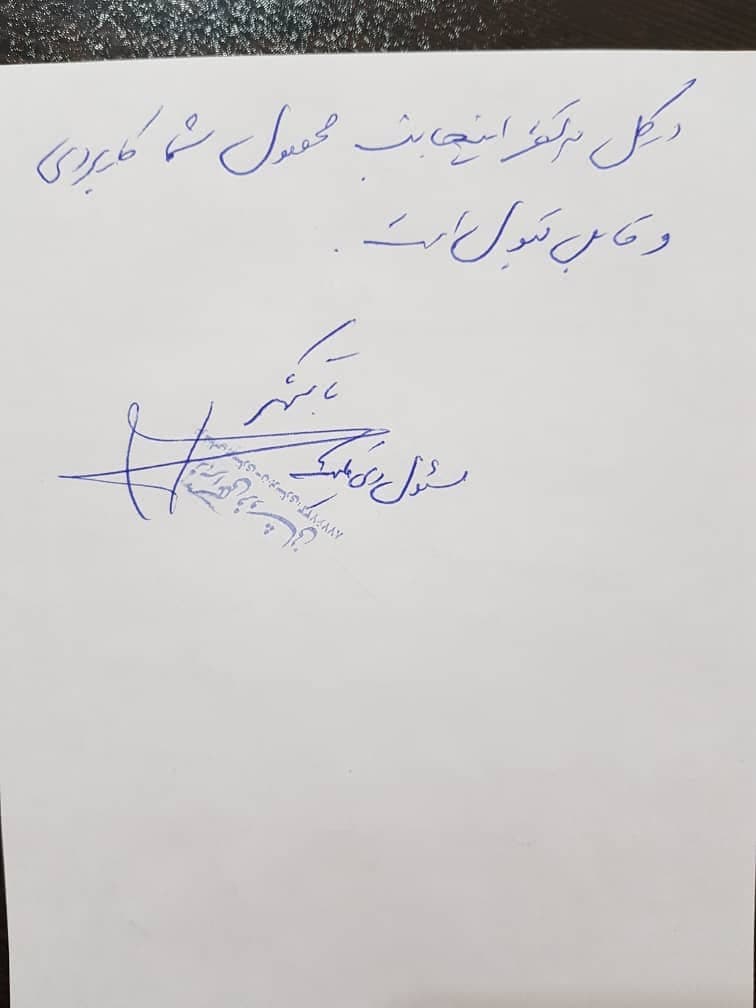 در کل به نظر اینجانب محصول شما کاربردی
و قابل قبول است .
با تشکر
مسئول